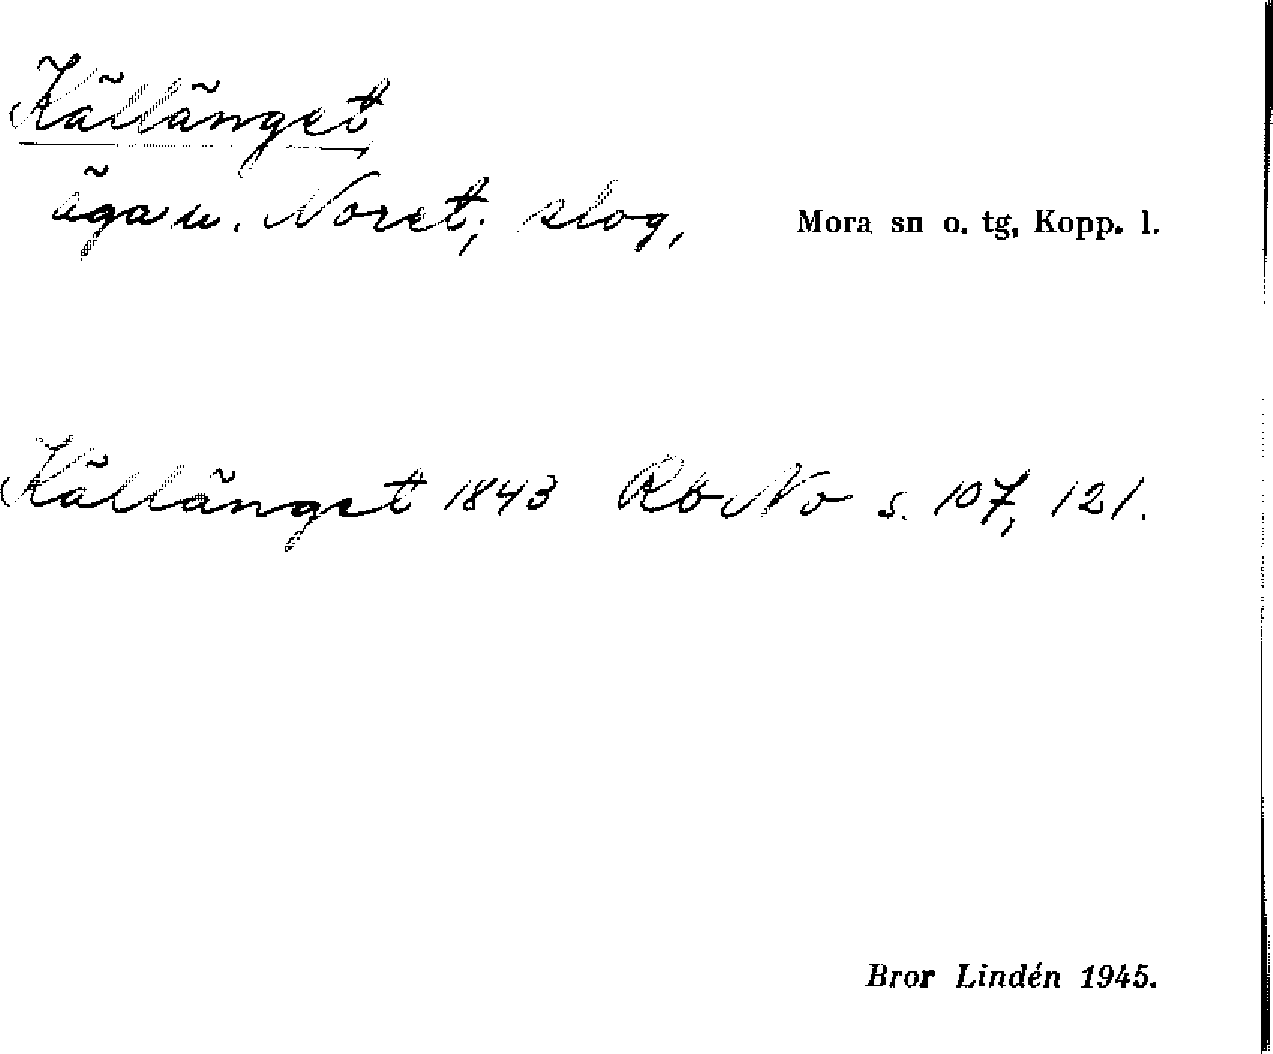 Källänget
äga u. Noret; slog, Mora sn o. tg, Kopp. l.
Källänget 1843 Rb No s. 107, 121.
Bror Lindén 1945.